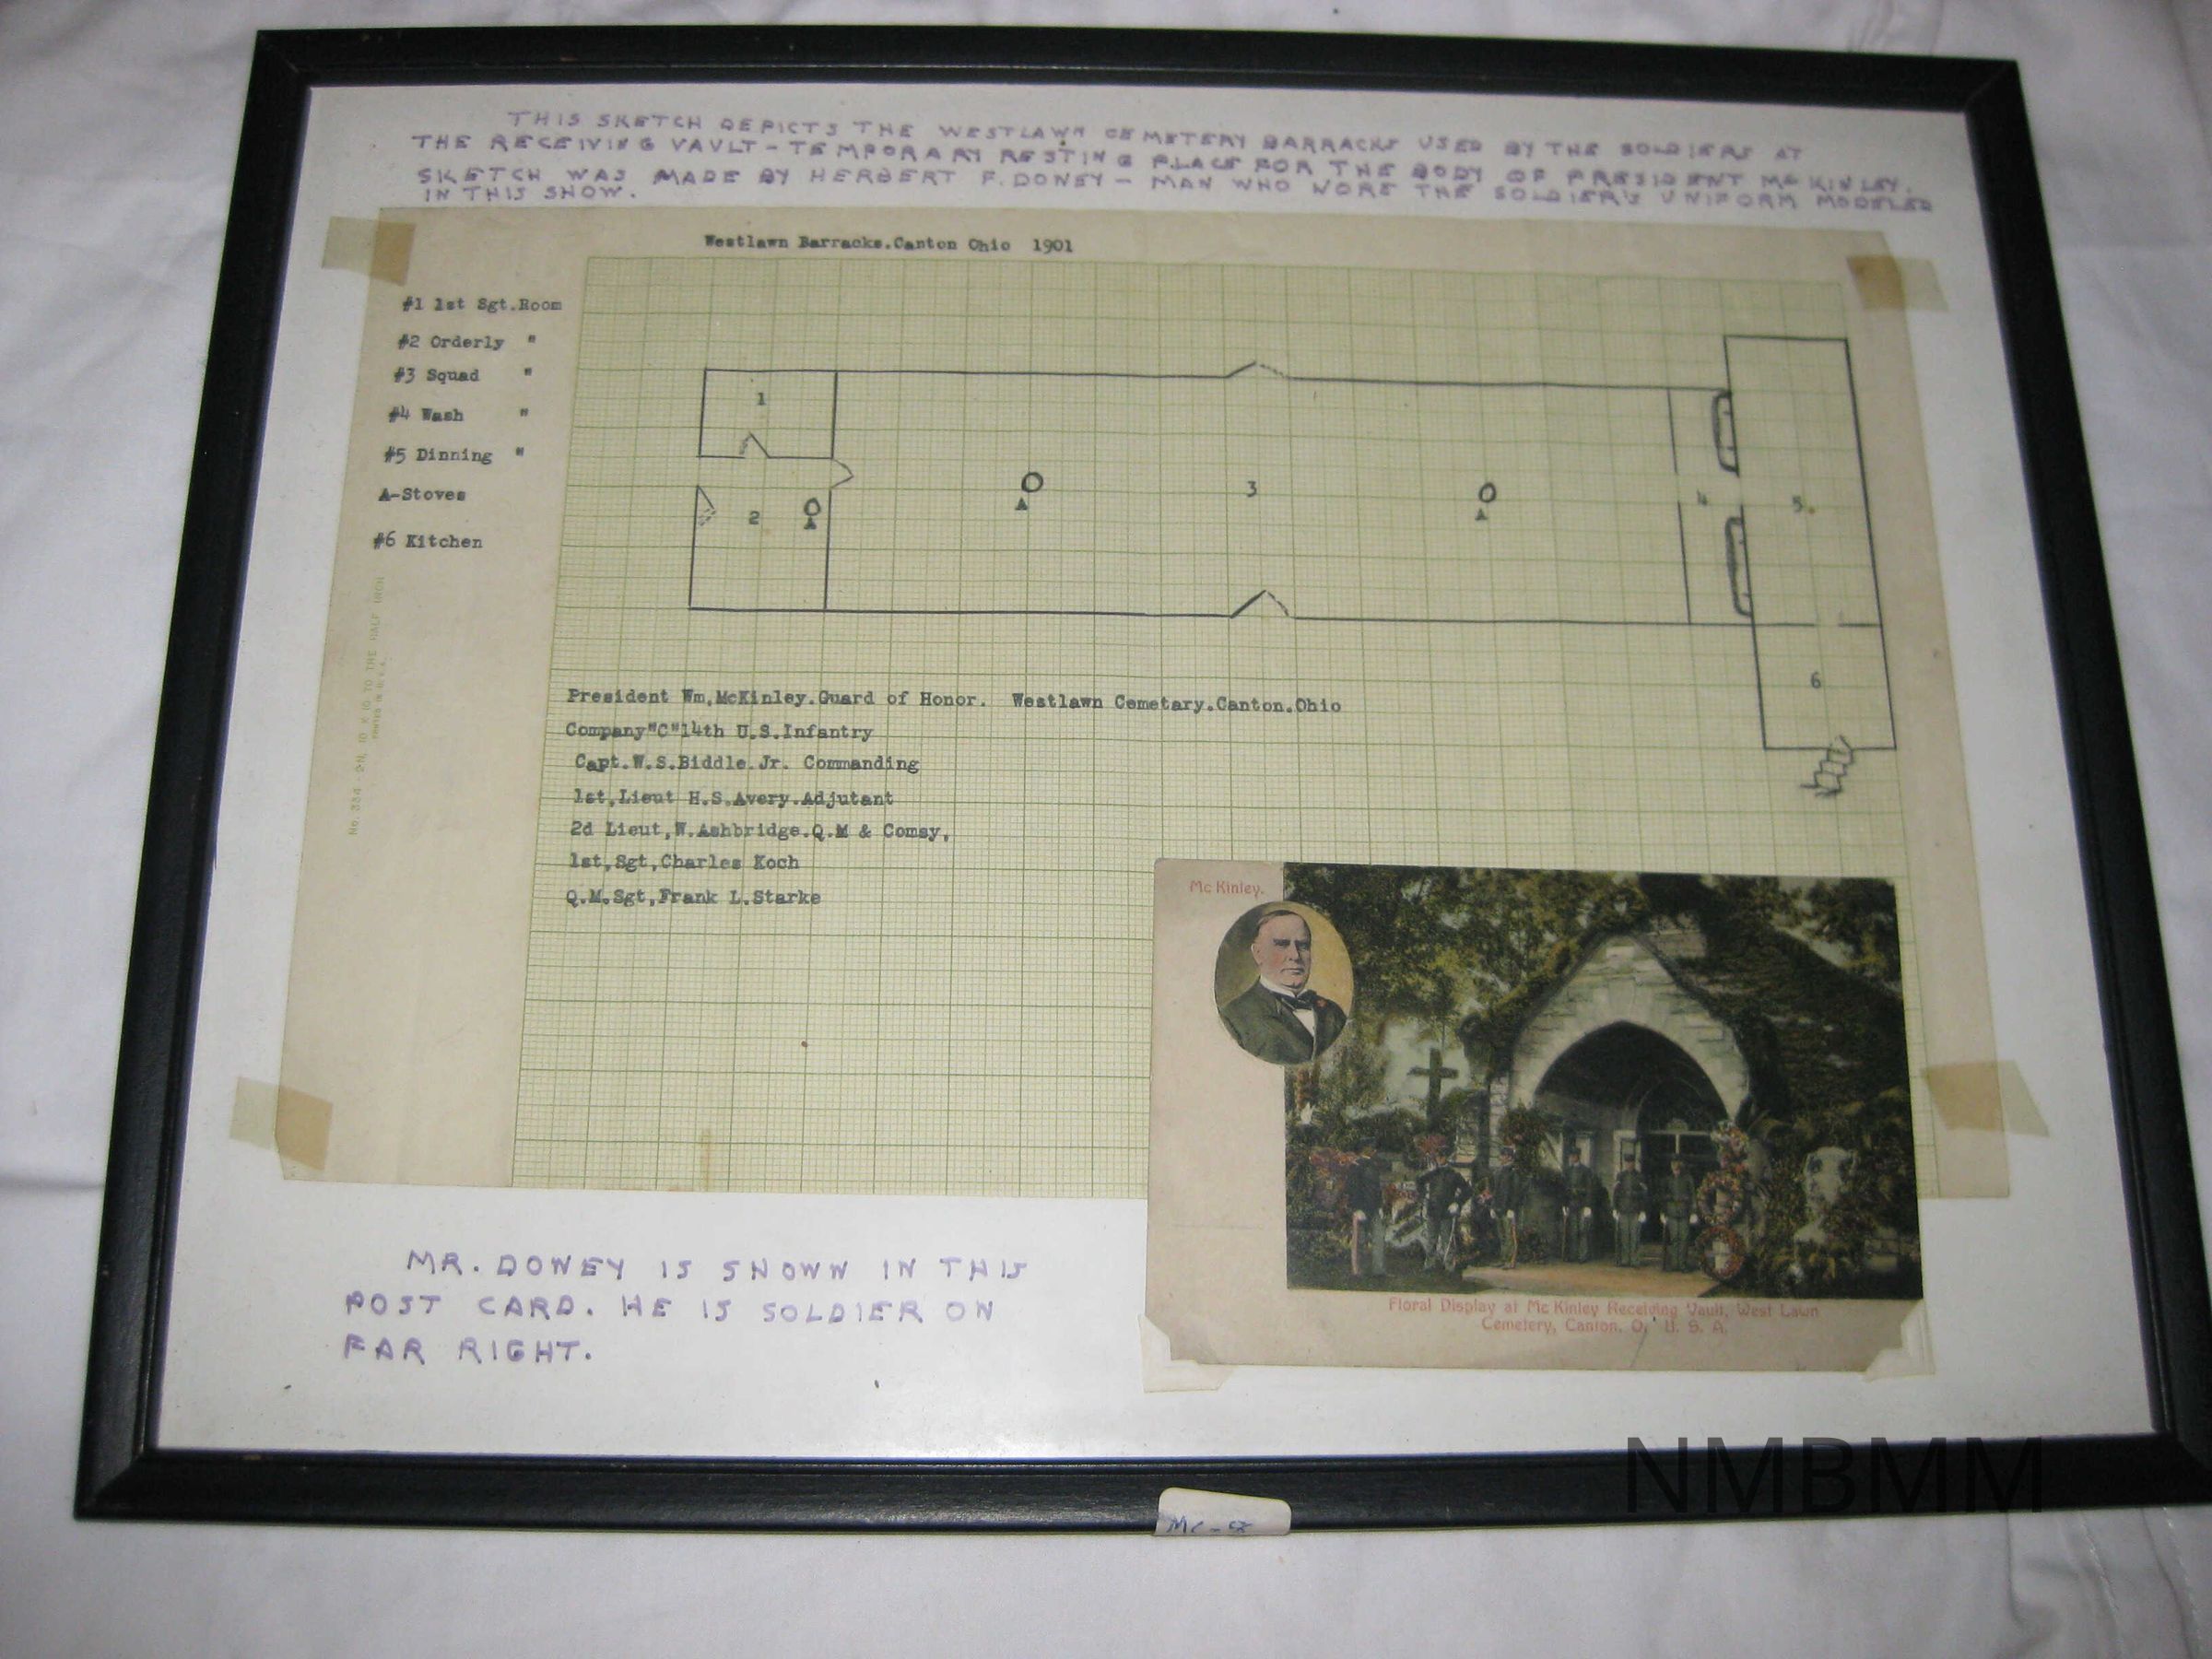 THIS SKETCH DEPICTS THE WESTLAWN CEMETERY BARRACKS USED BY THE SOLDIERS AT
THE RECEIVING VAULT - TEMPORARY RESTING PLACE FOR THE BODY OF PRESIDENT MCKINLEY.
SKETCH WAS MADE BY HERBERT F. DONEY - MAN WHO WORE THE SOLDIER'S UNIFORM MODELED
IN THIS SHOW.
Westlawn Barracks.Canton Ohio 1901
#1 1st Sgt.Room
#2 Orderly "
#3 Squad "
#4 Wash "
#5 Dinning "
A-Stoves
#6 Kitchen
1
2
3
4
5.
6
President Wm,McKinley.Guard of Honor. Westlawn Cemetary.Canton.Ohio
Company"C"14th U.S.Infantry
Capt.W.S.Biddle.Jr. Commanding
1st,Lieut H.S.Avery.Adjutant
2d Lieut,W.Ashbridge.Q.M & Comsy,
1st,Sgt,Charles Koch
Q.M.Sgt,Frank L.Starke
Mc Kinley.
Floral Display at Mc Kinley Receiving Vault, West Lawn
Cemetery, Canton, O, U. S. A.
MR. DONEY IS SHOWN IN THIS
POST CARD. HE IS SOLDIER ON
FAR RIGHT.
NMBMM